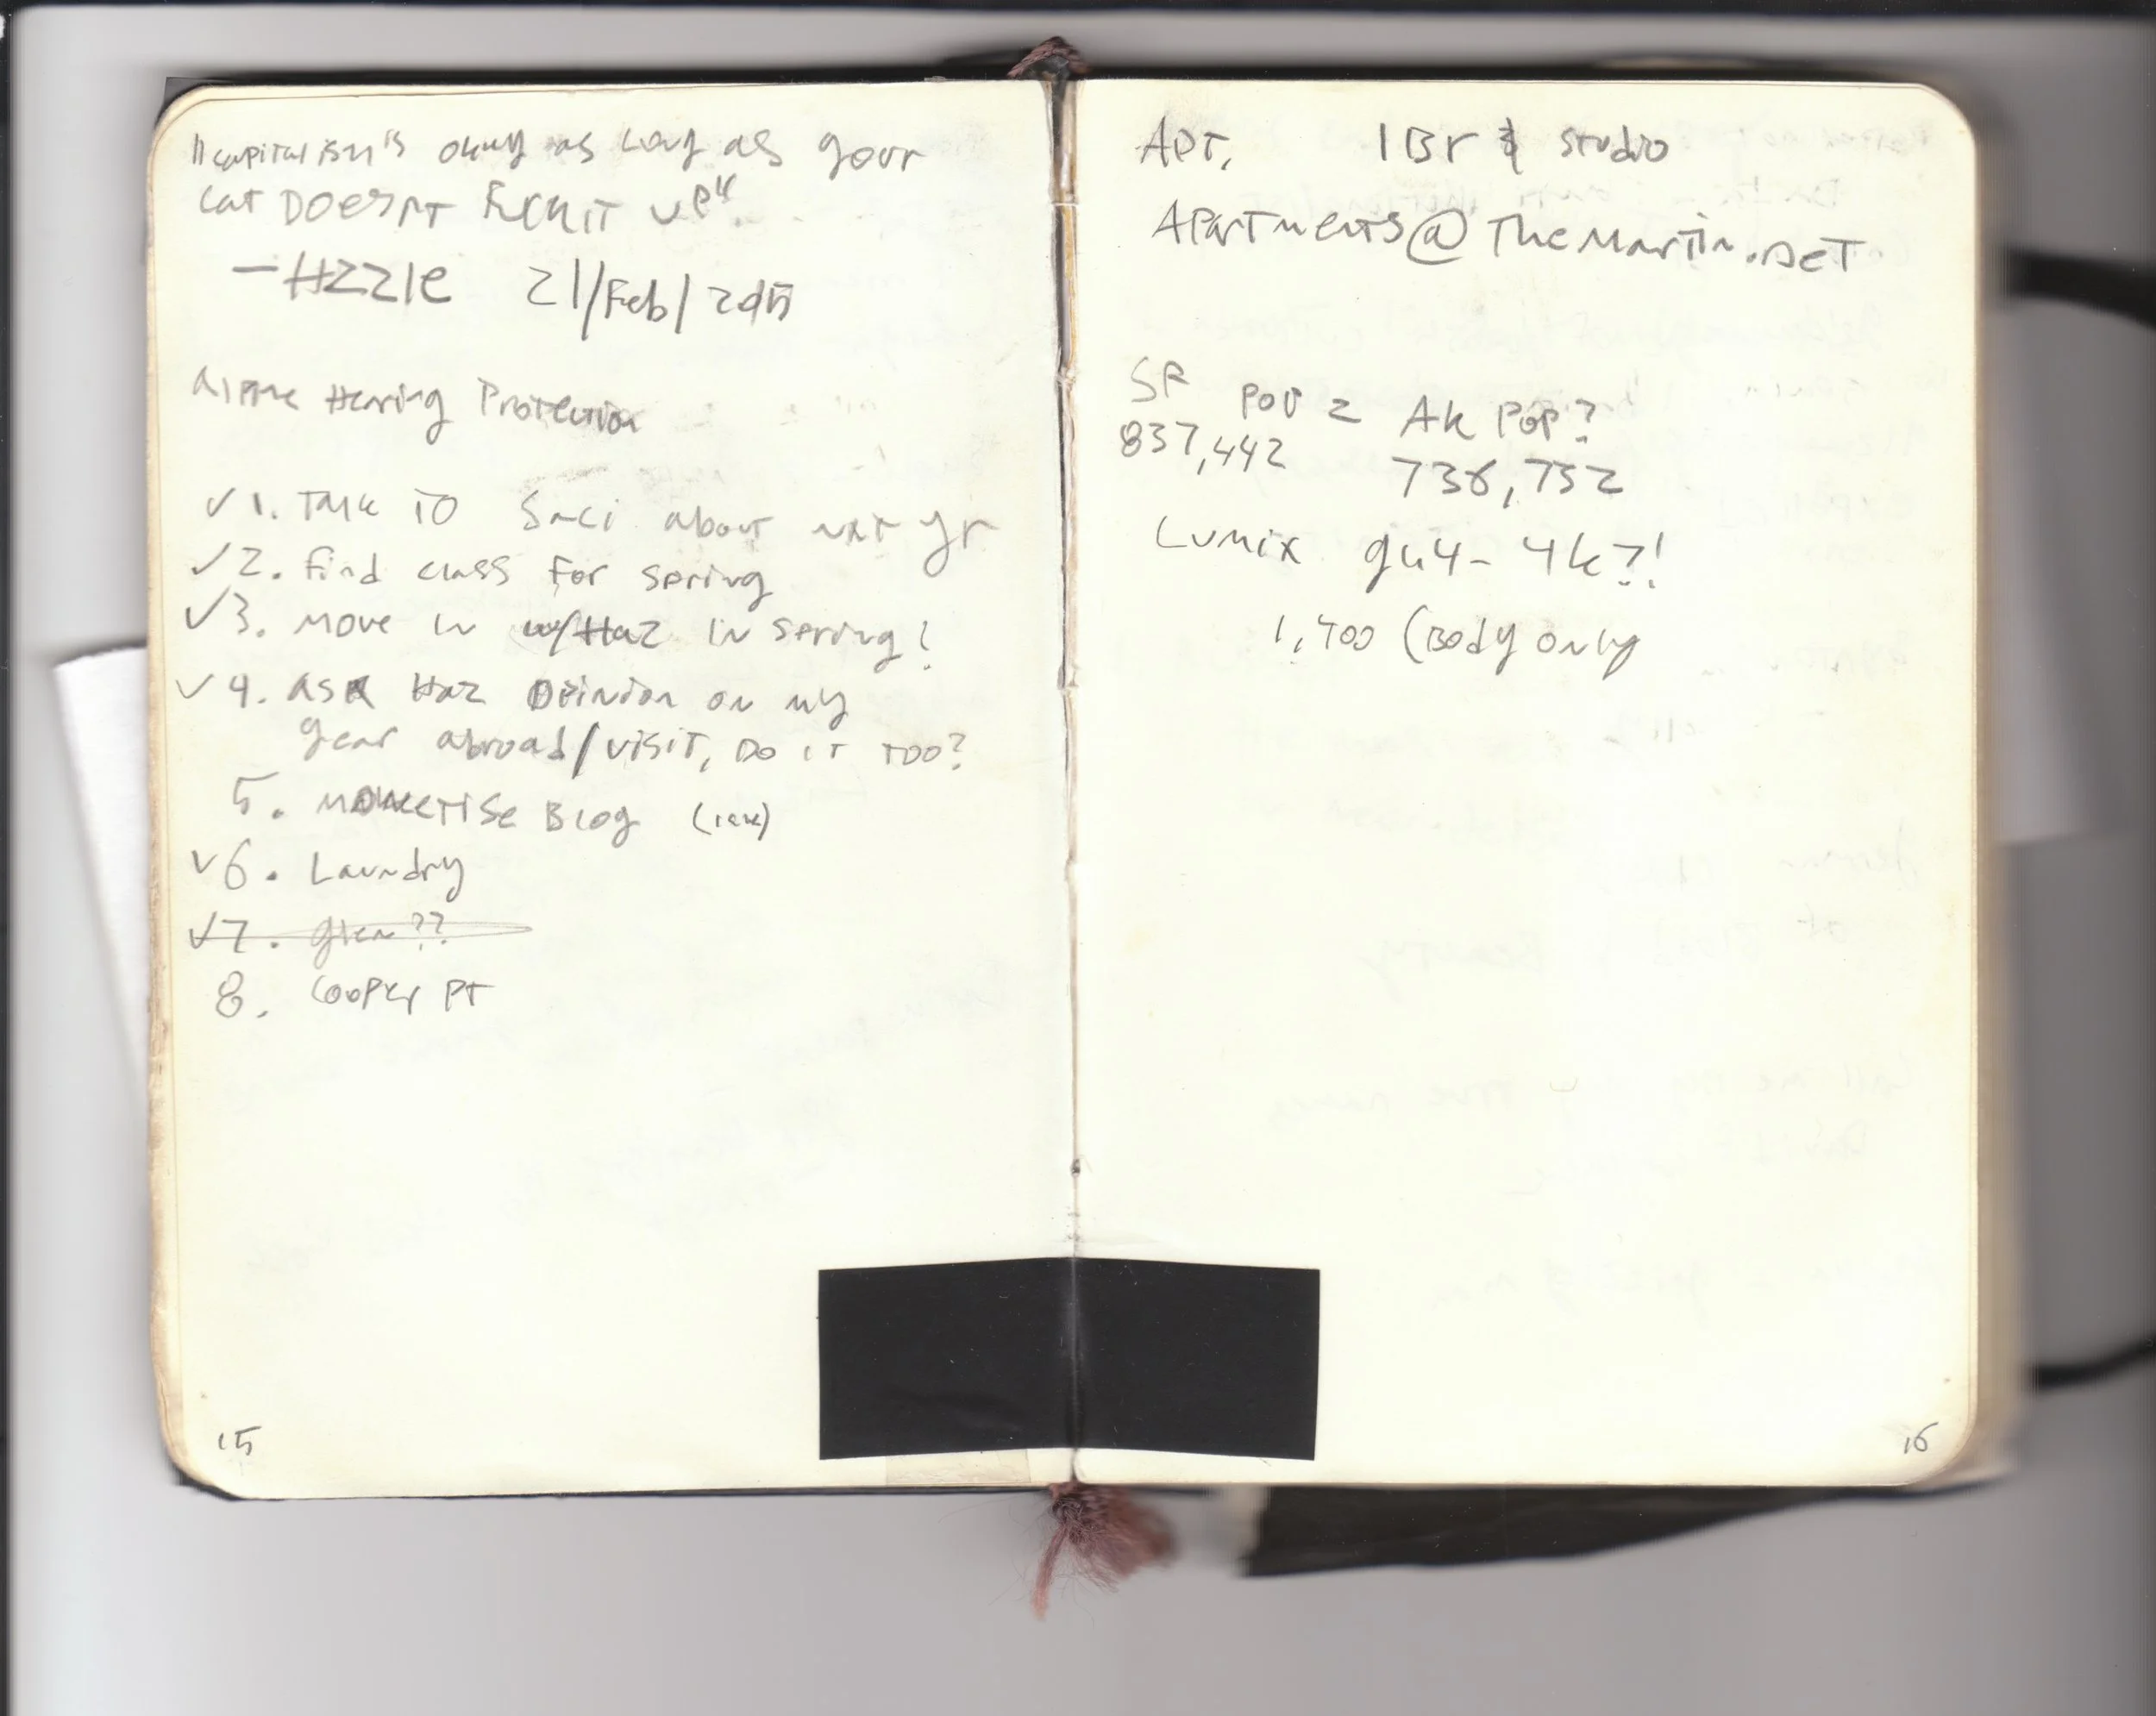 "capitalism is okay as long as your
cat DOESNT FUCK IT UP"
— Hzzle 21/Feb/2015
Alpine Hearing Protection
✓ 1. Talk to Saci about nxt yr
✓ 2. find class for spring
✓ 3. move in w/Haz in spring?
✓ 4. ask Haz opinion on my
year abroad/visit, Do it too?
5. MONETISE Blog
✓ 6. Laundry
✓ 7. glen??
8. Cooper pt
15
APT. 1 Br & studio
Apartments@TheMartin.neT
SF pop = Ak Pop?
837,442 736,732
Lumix gh4 - 4k?!
1,400 (Body only
16